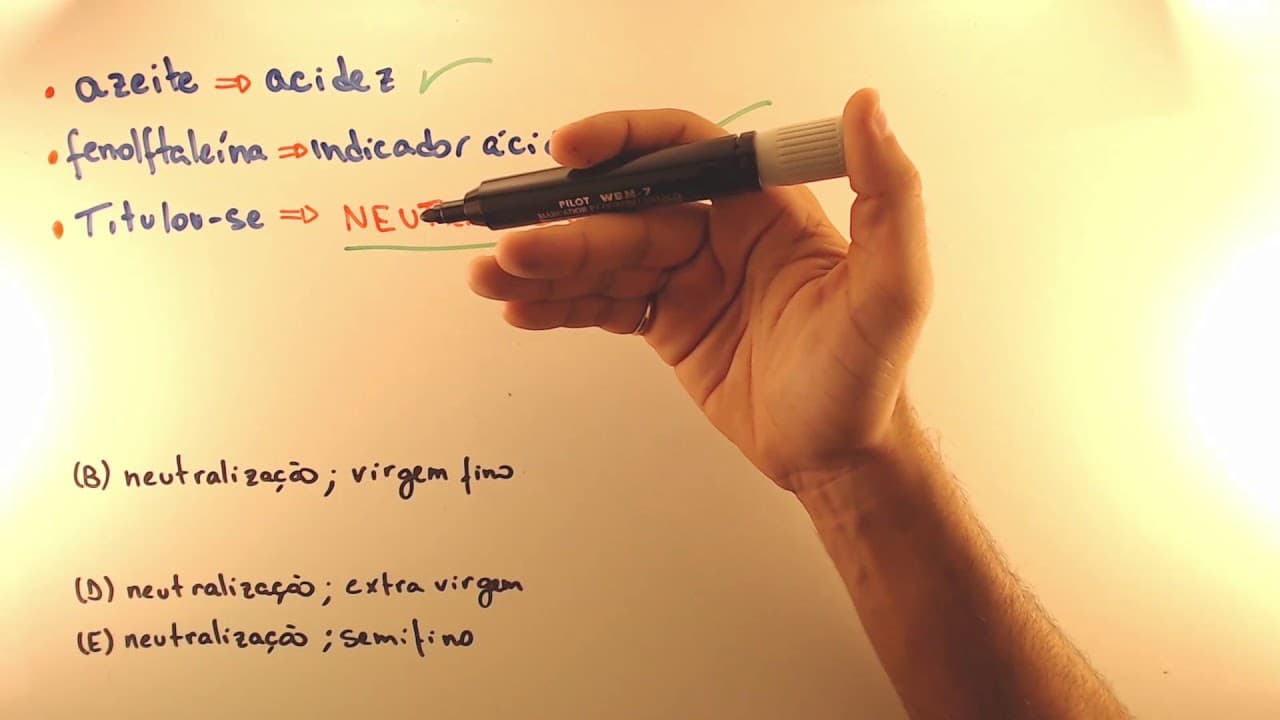 • azeite ⇒ acidez ✓
• fenolftaleína ⇒ indicador
• Titulou-se ⇒
PILOT WBM-7
(B) neutralização; virgem fino
(D) neutralização; extra virgem
(E) neutralização; semifino